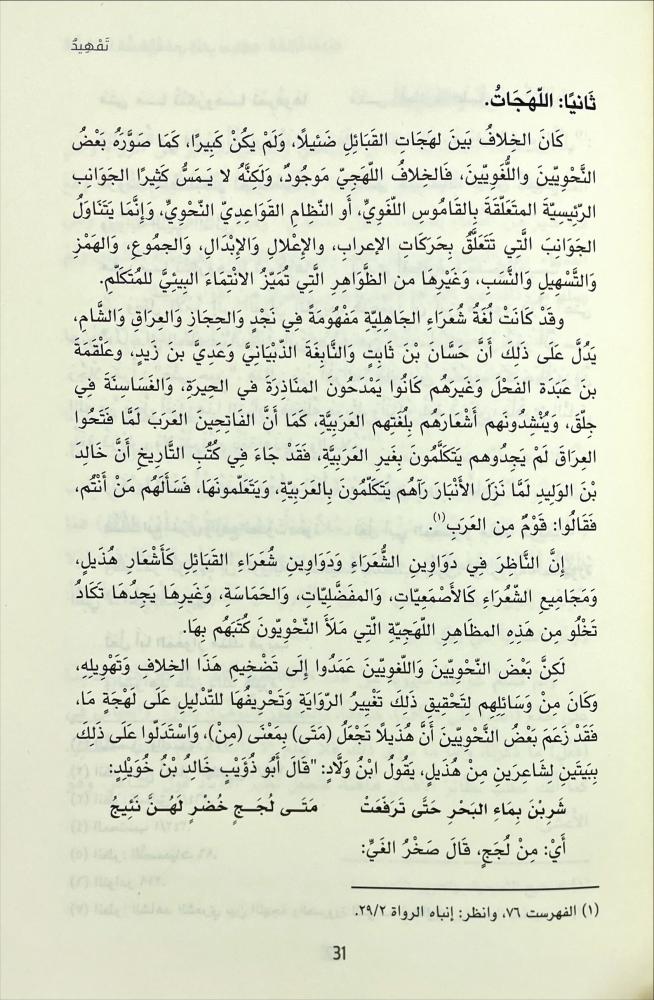 تَمْهِيدٌ
ثَانيًا: اللّهَجَاتُ.
كَانَ الخِلافُ بَينَ لهَجَاتِ القَبَائلِ ضَئيلًا، وَلَمْ يَكُنْ كَبِيرًا، كَمَا صَوَّرَهُ بَعْضُ
النَّحْوِيّينَ واللُّغَوِيّينَ، فَالخِلافُ اللّهَجِيّ مَوجُودٌ، وَلَكِنَّهُ لا يَـمَسُّ كَثيْرًا الجَوانِب
الرّئِيسِيّة المتَعَلّقَة بِالقَاموُسِ اللّغَوِيِّ، أَو النّظامِ القَوَاعدِيّ النّحْوِيِّ، وَإنَّمَا يَتَنَاوَلُ
الجَوَانبَ الَّتِي تَتَعَلَّقُ بِحَرَكَاتِ الإعرابِ، والإِعْلالِ وَالإِبْدَالِ، وَالجمُوعِ، وَالهَمْزِ
وَالتَّسْهِيلِ وَالنَّسَبِ، وَغَيْرِهَا من الظّوَاهِرِ الَّتِي تُمَيّزُ الانْتِماءَ البيئيَّ للمُتَكَلّمِ.
وقَدْ كَانَتْ لُغَةُ شُعَرَاءِ الجَاهليّةِ مَفْهُومَةً في نَجْدٍ وَالحِجَازِ وَالعِرَاقِ وَالشَّامِ،
يَدُلُّ عَلَى ذَلكَ أَنَّ حَسَّانَ بْنَ ثَابتٍ وَالنَّابِغَةَ الذّبْيَانِيَّ وَعَدِيَّ بنَ زَيدٍ، وعَلْقَمَةَ
بنَ عَبَدَة الفَحْلَ وَغَيرَهُم كَانُوا يَمْدَحُونَ المنَاذِرَةَ في الحِيرَةِ، وَالغَسَاسِنَةَ فِي
جِلّقَ، وَيُنْشِدُونَهم أَشْعَارَهُم بِلُغَتهم العَرَبيَّةِ، كَمَا أَنَّ الفَاتحِينَ العَرَبَ لَمَّا فَتَحُوا
العِرَاقَ لَمْ يَجِدُوهم يَتَكلَّمُونَ بِغَيرِ العَرَبيَّةِ، فَقَدْ جَاءَ في كُتُبِ التَّاريخِ أَنَّ خَالدَ
بْنَ الوَلِيدِ لَمَّا نَزَلَ الأَنْبَارَ رَآهُم يَتَكَلّمُونَ بالعَرَبِيّةِ، وَيَتَعَلّمونَهَا، فَسَأَلَهُم مَنْ أَنْتُم،
فَقَالُوا: قَوْمٌ مِن العَرَبِ(١).
إِنَّ النَّاظرَ فِي دَوَاوينِ الشُّعَرَاءِ وَدَوَاوينِ شُعَرَاءِ القَبَائلِ كَأَشْعَارِ هُذَيلٍ،
وَمَجَامِيعِ الشُّعَرَاءِ كَالأَصْمَعِيّاتِ، وَالمفَضّليّاتِ، وَالحَمَاسَةِ، وَغَيرِهَا يَجِدُهَا تَكَادُ
تَخْلُو مِن هَذِهِ المظَاهِرِ اللّهَجِيّةِ الّتِي مَلَأَ النّحْوِيّونَ كُتبَهُم بِهَا.
لَكِنَّ بَعْضَ النّحْوِيّينَ وَاللّغوِيّينَ عَمَدُوا إلَى تَضْخِيمِ هَذَا الخِلافِ وَتَهْوِيلِهِ،
وَكَانَ مِنْ وَسَائلِهِم لِتَحْقيقِ ذَلكَ تَغْيِيرُ الرّوَايَةِ وَتَحْريفُهَا للتّدْلِيلِ عَلَى لَهْجَةٍ مَا،
فَقَدْ زَعَمَ بَعْضُ النّحْوِيّينَ أَنَّ هُذَيلًا تَجْعَلُ (مَتَى) بِمَعْنَى (مِنْ)، وَاسْتَدلّوا عَلَى ذَلكَ
بِبَيتَينِ لِشَاعرَينِ مِنْ هُذَيلٍ، يَقُولُ ابْنُ وَلّادٍ: "قَالَ أَبُو ذُؤَيْبٍ خَالدُ بْنُ خُوَيْلدٍ:
شَرِبْنَ بِمَاءِ البَحْرِ حَتَّى تَرَفَعَتْ مَتَى لُجَجٍ خُضْرٍ لَهُنَّ نَئيجُ
أَيْ: مِنْ لُجَجٍ، قَالَ صَخْرُ الغَيِّ:
(١) الفهرست ٧٦، وانظر: إنباه الرواة ٢٩/٢.
31